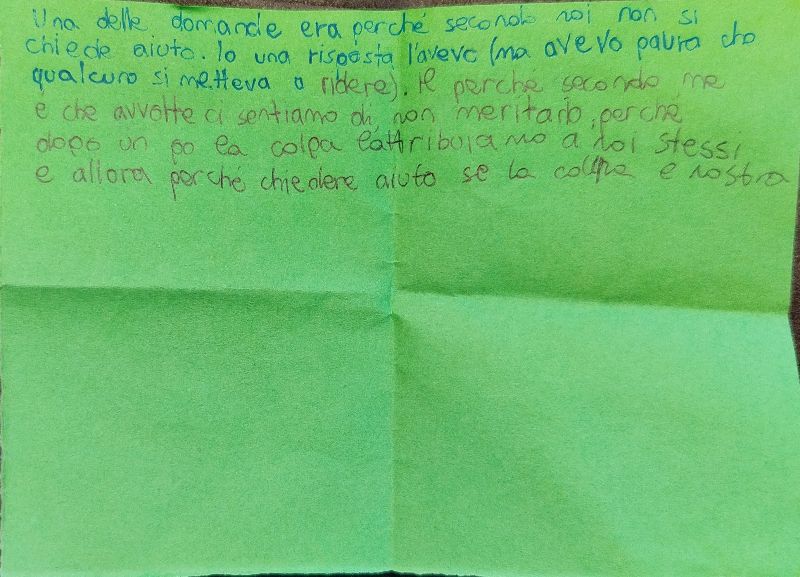 Una delle domande era perché secondo noi non si
chiede aiuto. Io una risposta l'avevo (ma avevo paura che
qualcuno si metteva a ridere). Il perché secondo me
e che avvolte ci sentiamo di non meritarlo, perché
dopo un po la colpa l'attribuiamo a noi stessi
e allora perché chiedere aiuto se la colpa e nostra